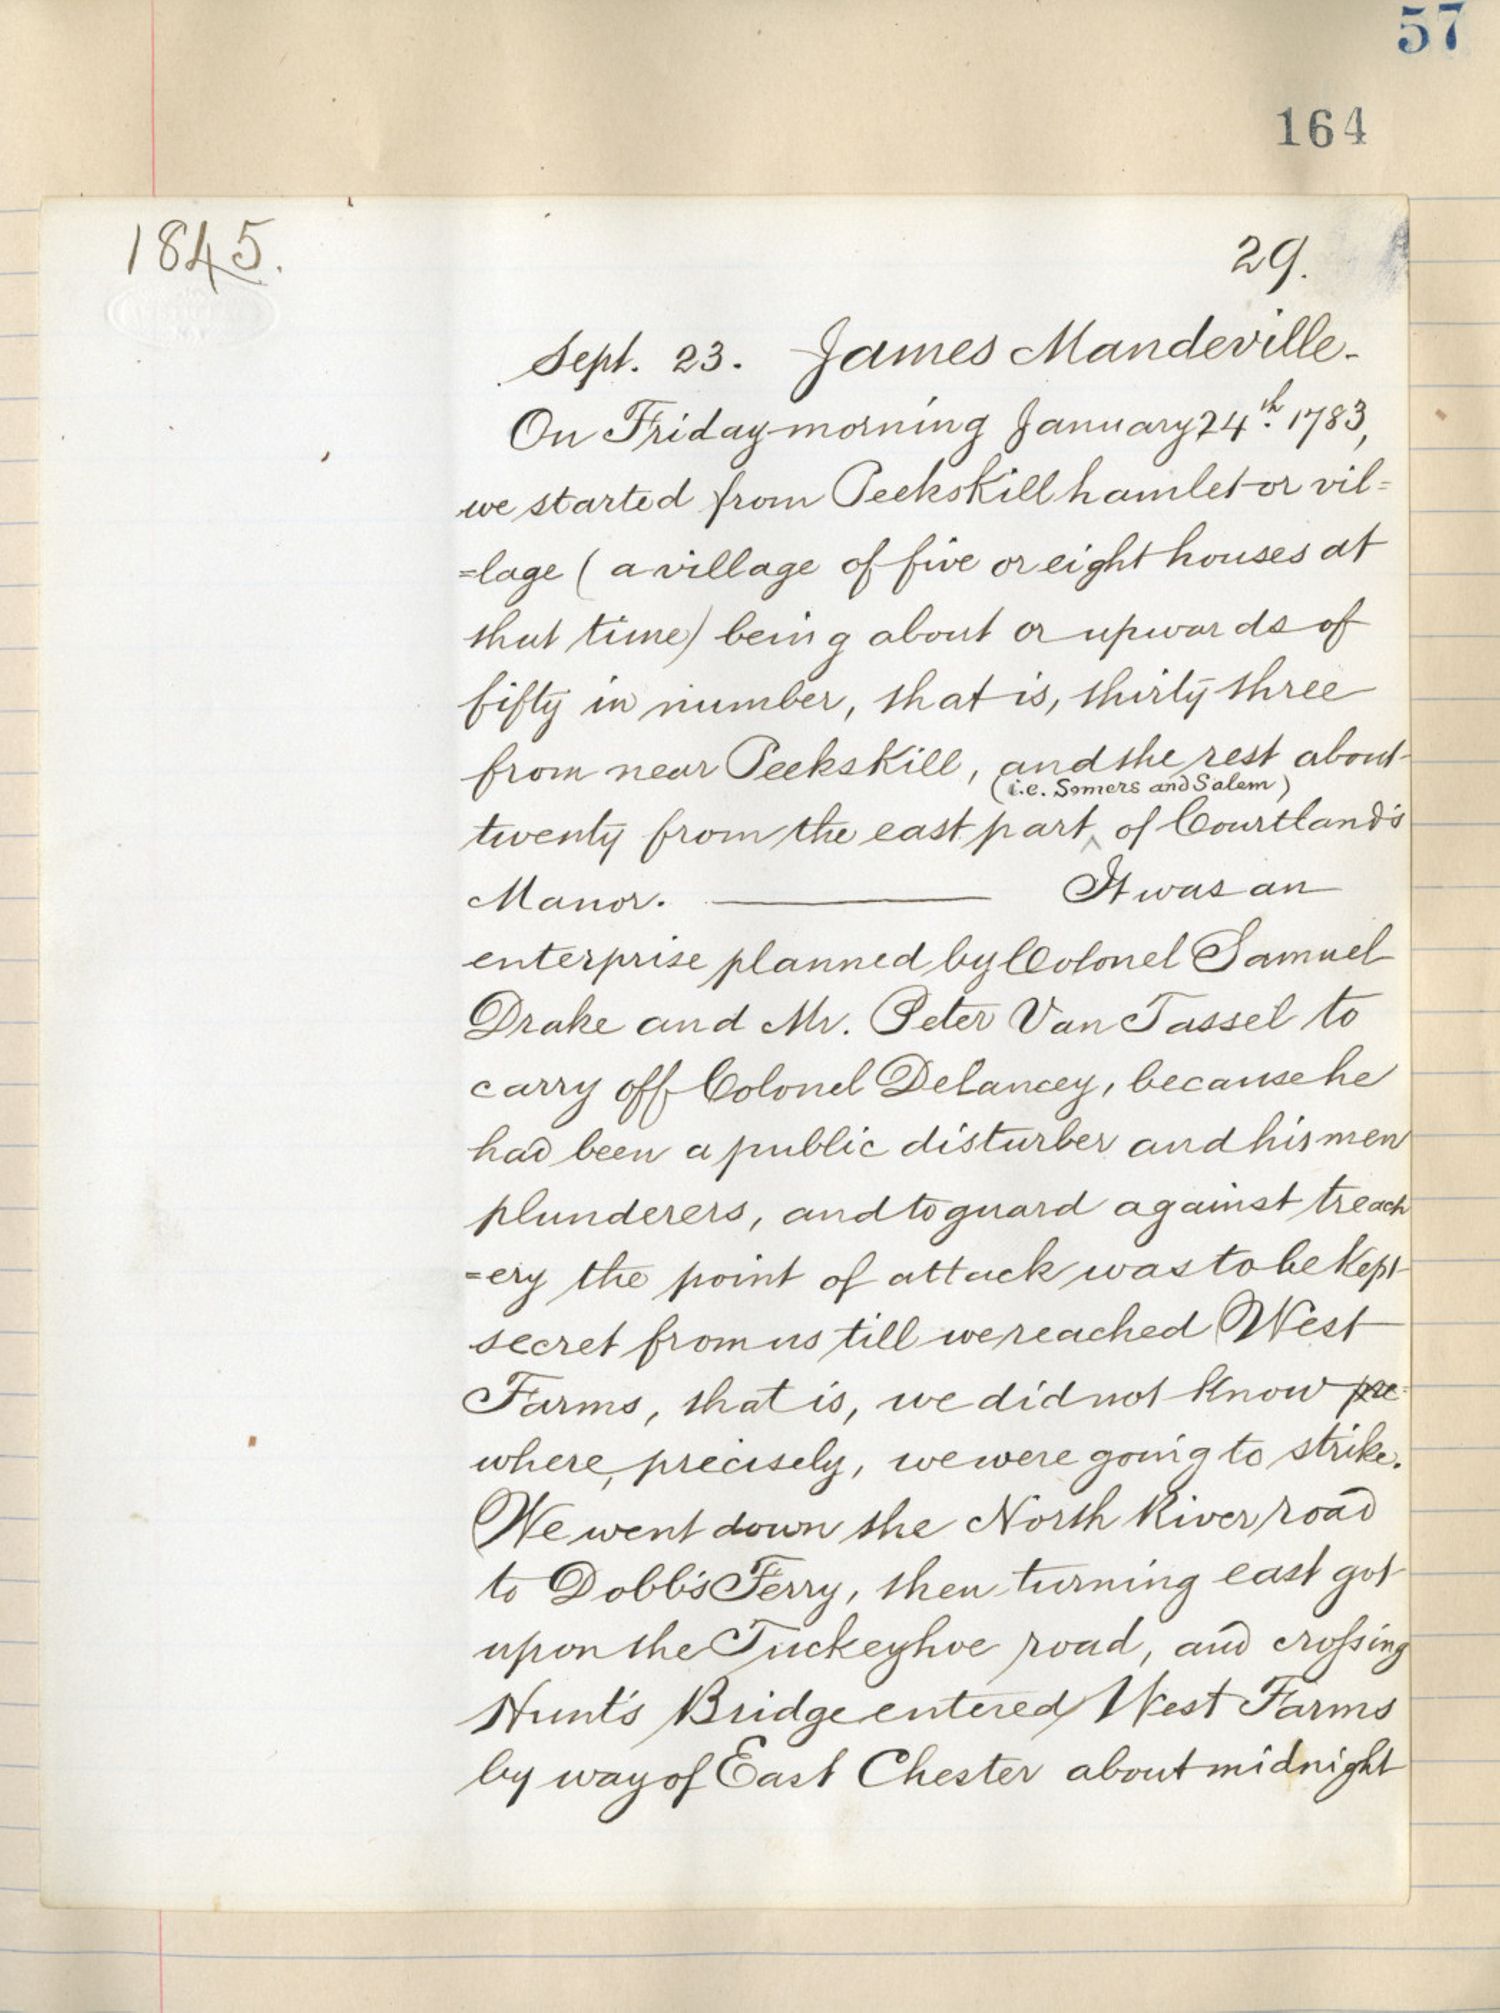 57
164
1845.
29.
Sept. 23. James Mandeville.
On Friday morning January 24th. 1783,
we started from PeeksKill hamlet or vil=
=lage (a village of five or eight houses at
that time) being about or upwards of
fifty in number, that is, thirty three
from near PeeksKill, and the rest about
(i.e. Somers and Salem)
twenty from the east part ^ of Courtland's
Manor. ——— It was an
enterprise planned by Colonel Samuel
Drake and Mr. Peter Van Tassel to
carry off Colonel DeLancey, because he
had been a public disturber and his men
plunderers, and to guard against treach
=ery the point of attack was to be Kept
secret from us till we reached West
Farms, that is, we did not Know pre=
where, precisely, we were going to strike.
We went down the North River road
to Dobb's Ferry, then turning east got
upon the Tuckeyhoe road, and crossing
Hunt's Bridge entered West Farms
by way of East Chester about midnight